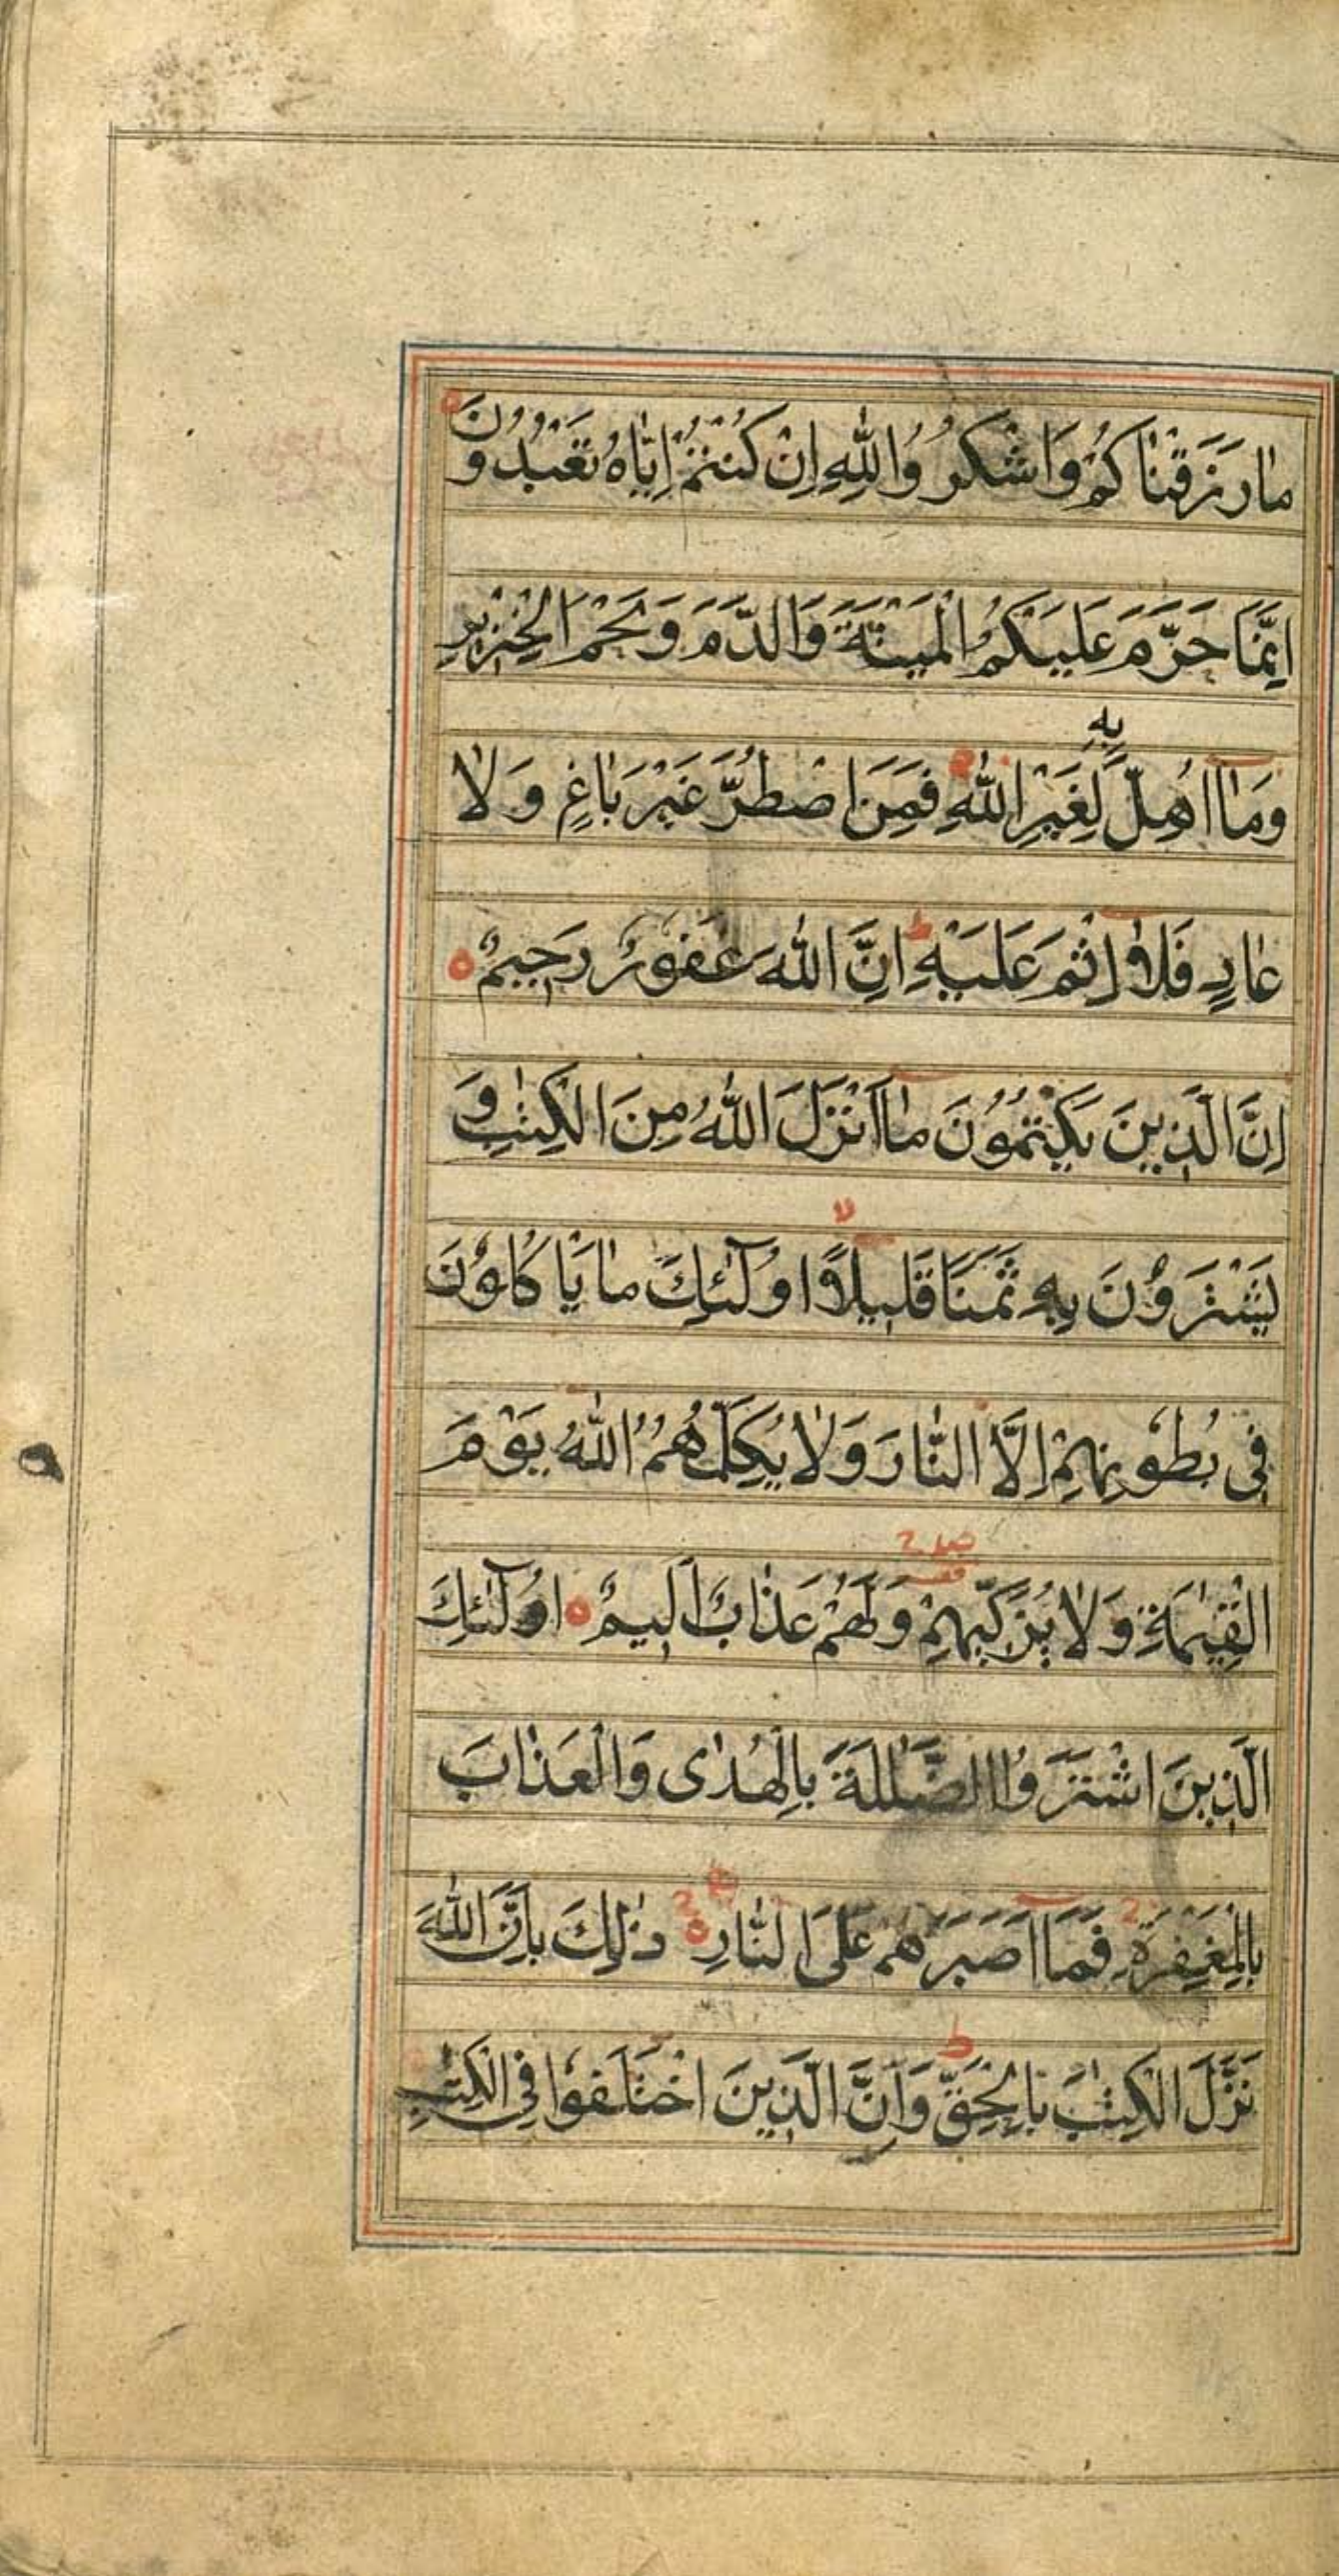 مَا رَزَقْنَاكُمْ وَاشْكُرُوا لِلّٰهِ اِنْ كُنْتُمْ اِيَّاهُ تَعْبُدُونَ
اِنَّمَا حَرَّمَ عَلَيْكُمُ الْمَيْتَةَ وَالدَّمَ وَلَحْمَ الْخِنْزِيرِ
وَمَا اُهِلَّ بِهٖ لِغَيْرِ اللّٰهِ فَمَنِ اضْطُرَّ غَيْرَ بَاغٍ وَلَا
عَادٍ فَلَا اِثْمَ عَلَيْهِ ط اِنَّ اللّٰهَ غَفُورٌ رَحِيمٌ
اِنَّ الَّذِينَ يَكْتُمُونَ مَا اَنْزَلَ اللّٰهُ مِنَ الْكِتٰبِ وَ
يَشْتَرُونَ بِهٖ ثَمَنًا قَلِيلًا لا اُولٰٓئِكَ مَا يَاْكُلُونَ
فِى بُطُونِهِمْ اِلَّا النَّارَ وَلَا يُكَلِّمُهُمُ اللّٰهُ يَوْمَ
الْقِيٰمَةِ وَلَا يُزَكِّيهِمْ وَلَهُمْ عَذَابٌ اَلِيمٌ اُولٰٓئِكَ
الَّذِينَ اشْتَرَوُا الضَّلٰلَةَ بِالْهُدٰى وَالْعَذَابَ
بِالْمَغْفِرَةِ فَمَا اَصْبَرَهُمْ عَلَى النَّارِ ذٰلِكَ بِاَنَّ اللّٰهَ
نَزَّلَ الْكِتٰبَ بِالْحَقِّ ط وَاِنَّ الَّذِينَ اخْتَلَفُوا فِى الْكِتٰبِ